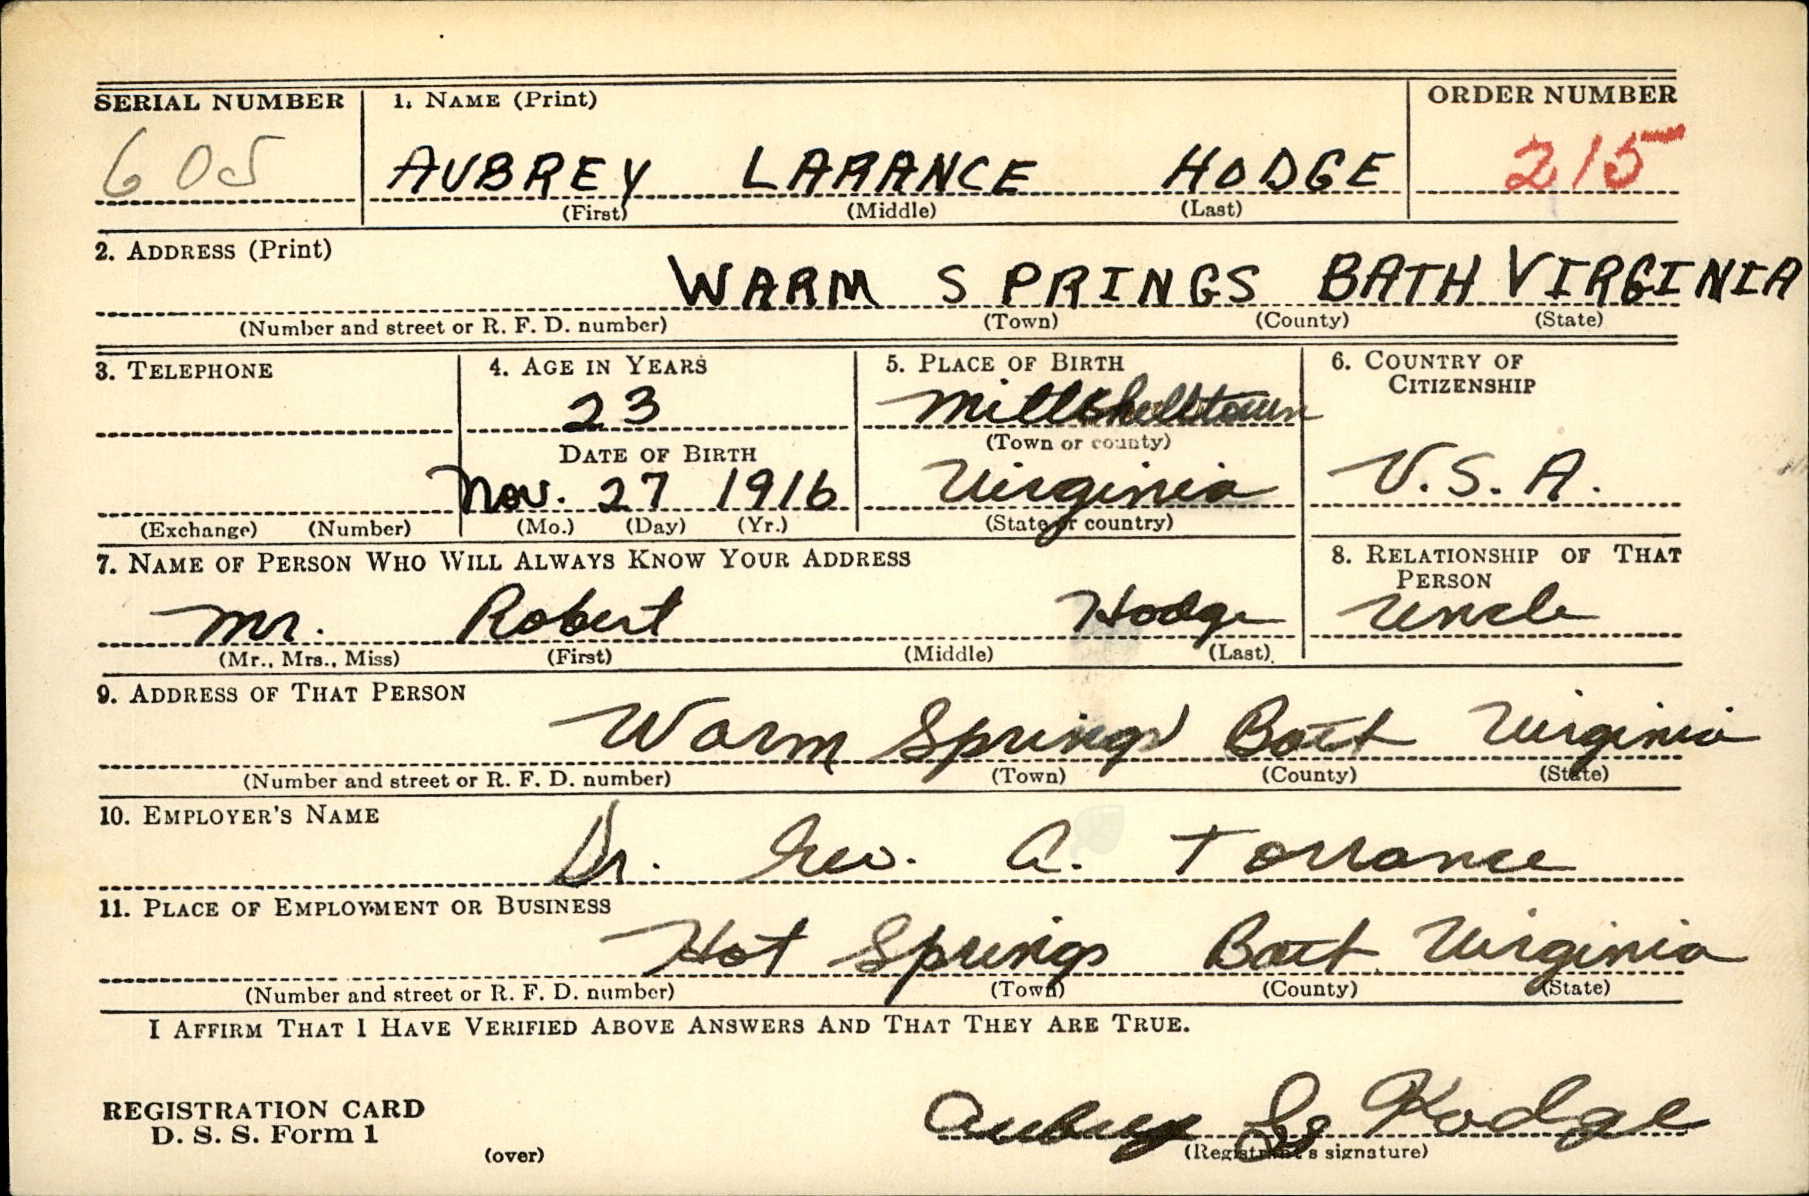 SERIAL NUMBER 1. NAME (Print) ORDER NUMBER
605 AUBREY LARANCE HODGE 215
(First) (Middle) (Last)
2. ADDRESS (Print)
WARM SPRINGS BATH VIRGINIA
(Number and street or R. F. D. number) (Town) (County) (State)
3. TELEPHONE 4. AGE IN YEARS 5. PLACE OF BIRTH 6. COUNTRY OF CITIZENSHIP
23
(Town or county)
DATE OF BIRTH
Nov. 27 1916 Virginia U.S.A.
(Exchange) (Number) (Mo.) (Day) (Yr.) (State or country)
7. NAME OF PERSON WHO WILL ALWAYS KNOW YOUR ADDRESS 8. RELATIONSHIP OF THAT PERSON
Mr. Robert Hodge Uncle
(Mr., Mrs., Miss) (First) (Middle) (Last)
9. ADDRESS OF THAT PERSON
Warm Springs Bath Virginia
(Number and street or R. F. D. number) (Town) (County) (State)
10. EMPLOYER'S NAME
Dr. Geo. A. Torrance
11. PLACE OF EMPLOYMENT OR BUSINESS
Hot Springs Bath Virginia
(Number and street or R. F. D. number) (Town) (County) (State)
I AFFIRM THAT I HAVE VERIFIED ABOVE ANSWERS AND THAT THEY ARE TRUE.
REGISTRATION CARD
D. S. S. Form 1
(over)
Aubrey L. Hodge
(Registrant's signature)